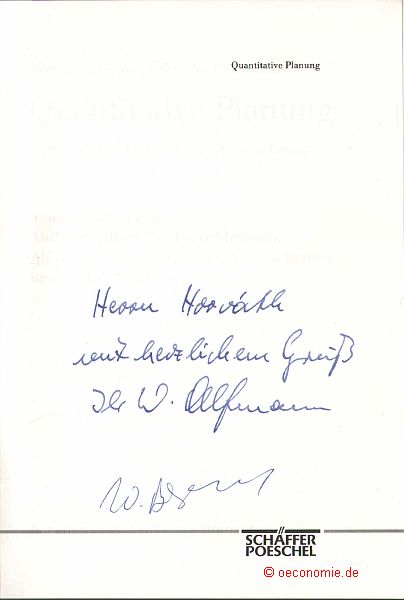 Quantitative Planung
Quantitative Planung
Herrn Horváth
mit herzlichem Gruß
Ihr W.
W.
SCHÄFFER
POESCHEL
© oeconomie.de